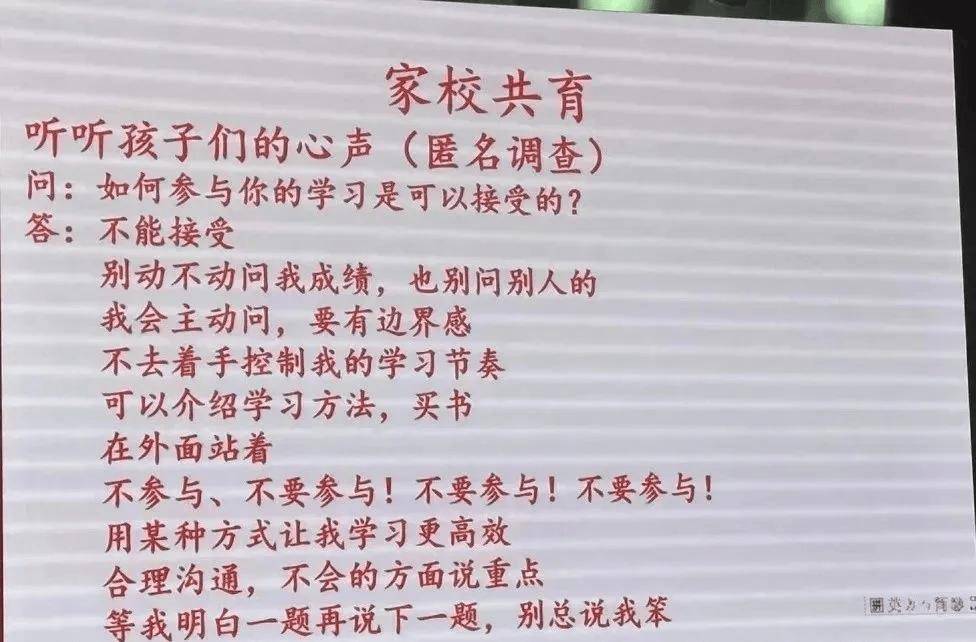 家校共育
听听孩子们的心声（匿名调查）
问：如何参与你的学习是可以接受的？
答：不能接受
别动不动问我成绩，也别问别人的
我会主动问，要有边界感
不去着手控制我的学习节奏
可以介绍学习方法，买书
在外面站着
不参与、不要参与！不要参与！不要参与！
用某种方式让我学习更高效
合理沟通，不会的方面说重点
等我明白一题再说下一题，别总说我笨